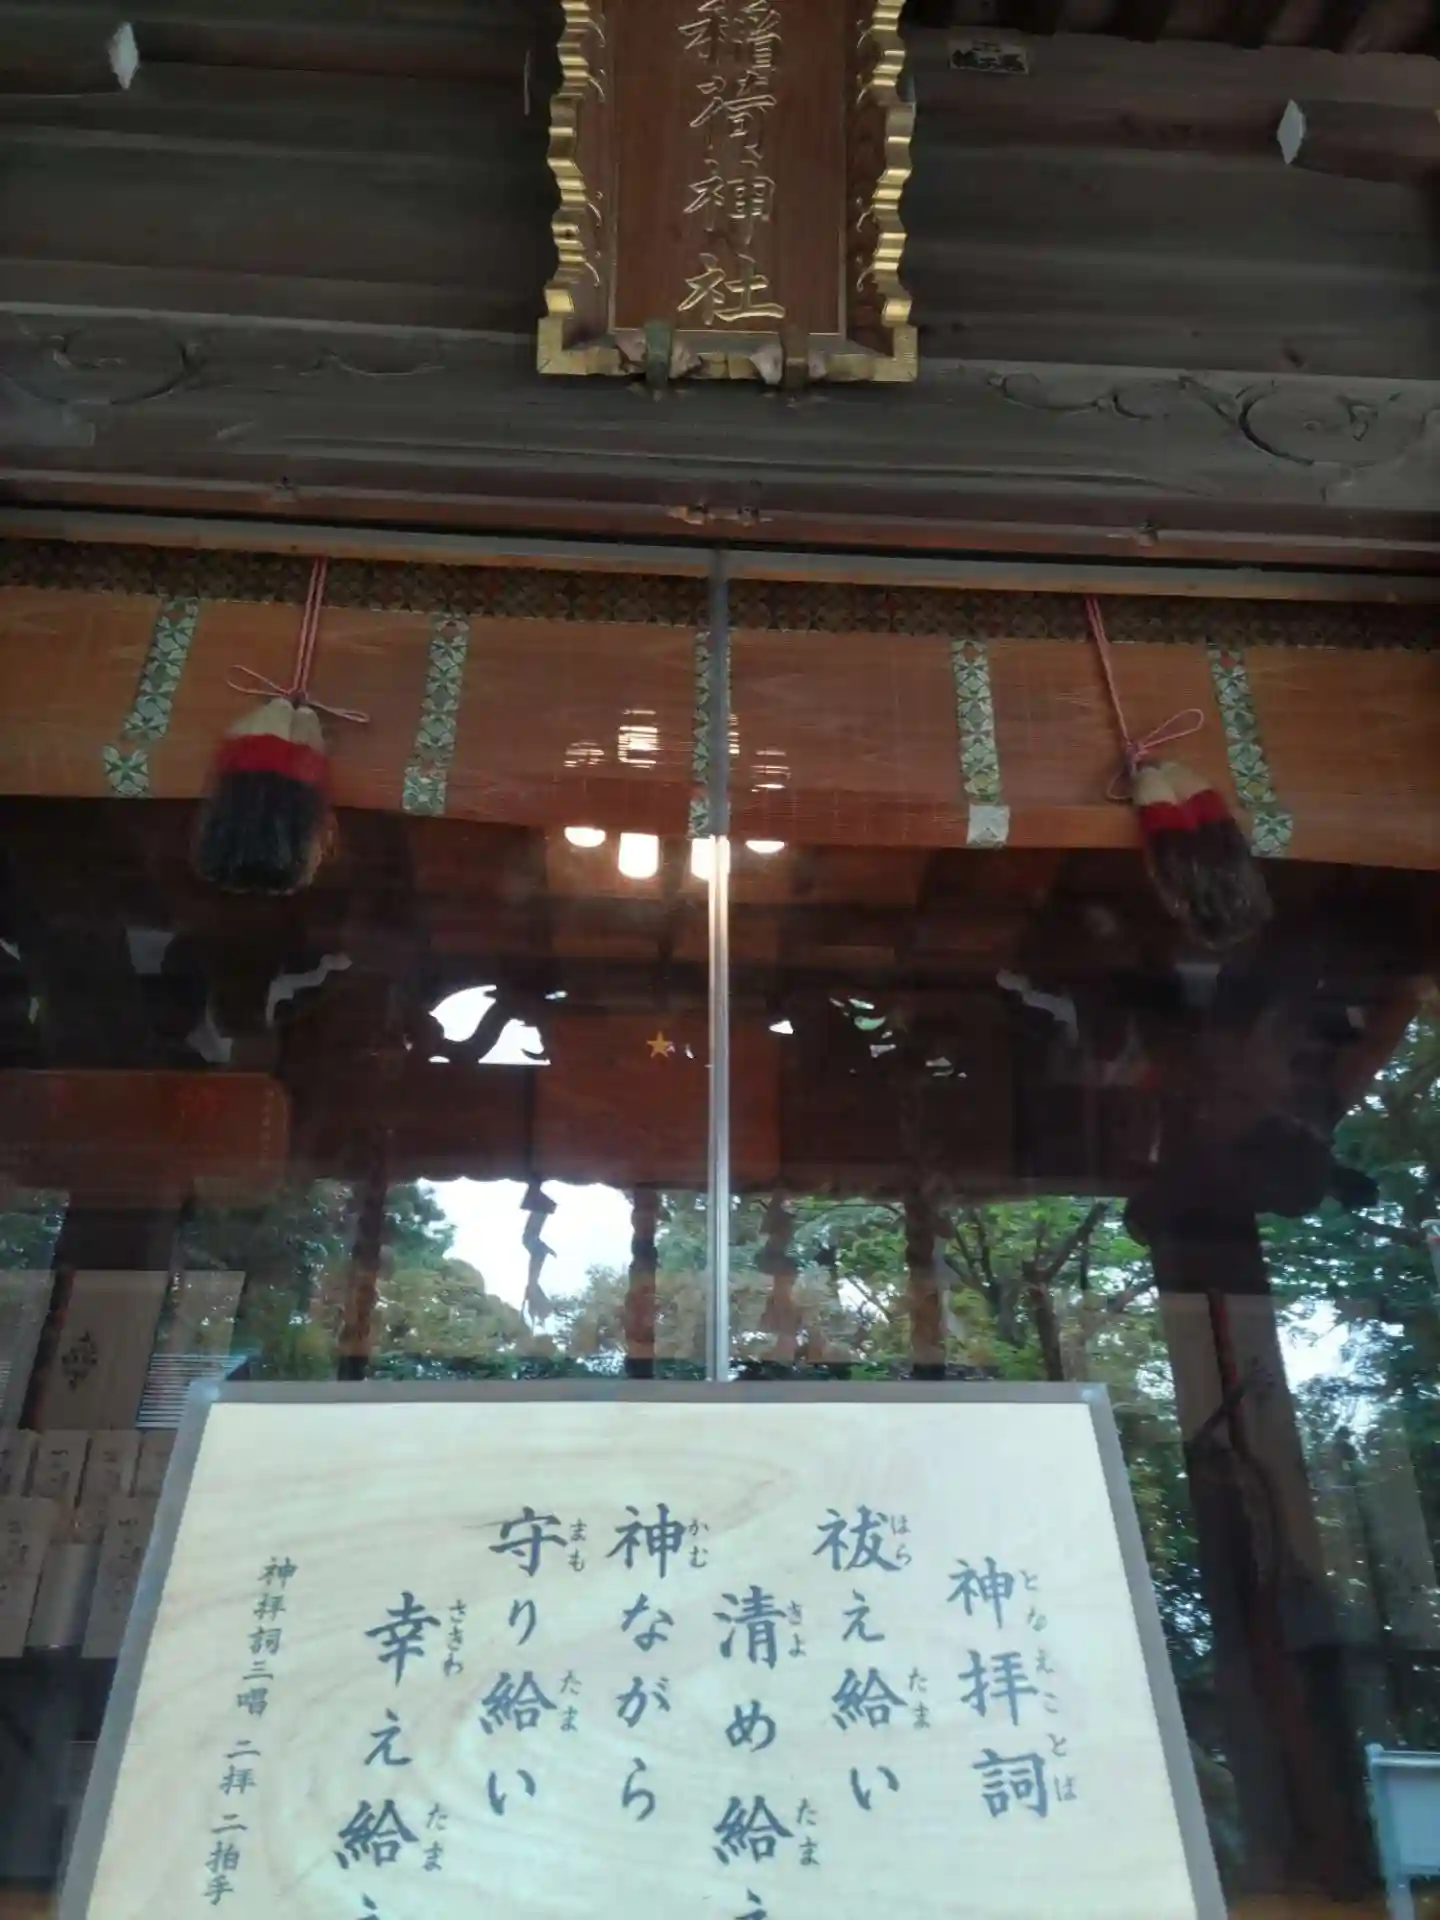 稲荷神社
神拝詞
となえことば
祓え給い
はら
たま
清め給え
きよ
たま
神ながら
かむ
守り給い
まも
たま
幸え給え
さきわ
たま
神拝詞三唱 二拝 二拍手